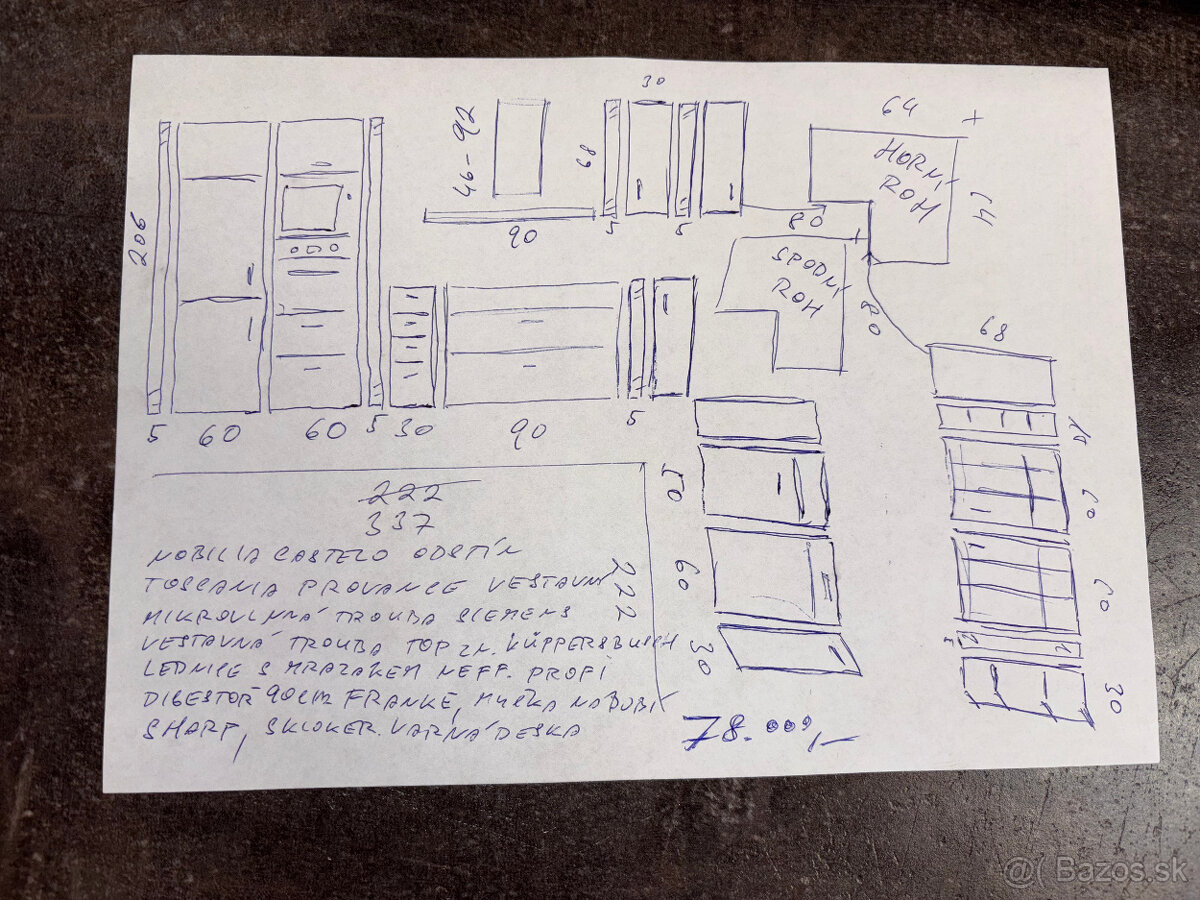 30
64
46-92
68
HORNÍ
ROH
64
206
90
5
5
80
SPODNÍ
ROH
80
68
5
60
60
5
30
90
5
10
50
60
60
60
30
30
222
337
222
NOBILIA CASTELO ODSTÍN
TOSCANIA PROVANCE VESTAVNÁ
MIKROVLNNÁ TROUBA SIEMENS
VESTAVNÁ TROUBA TOP ZN. KÜPPERSBUSCH
LEDNICE S MRAZÁKEM NEFF. PROFI
DIGESTOŘ 90CM FRANKE, MYČKA NÁDOBÍ
SHARP, SKLOKER. VARNÁ DESKA
78.000,-
@( Bazos.sk